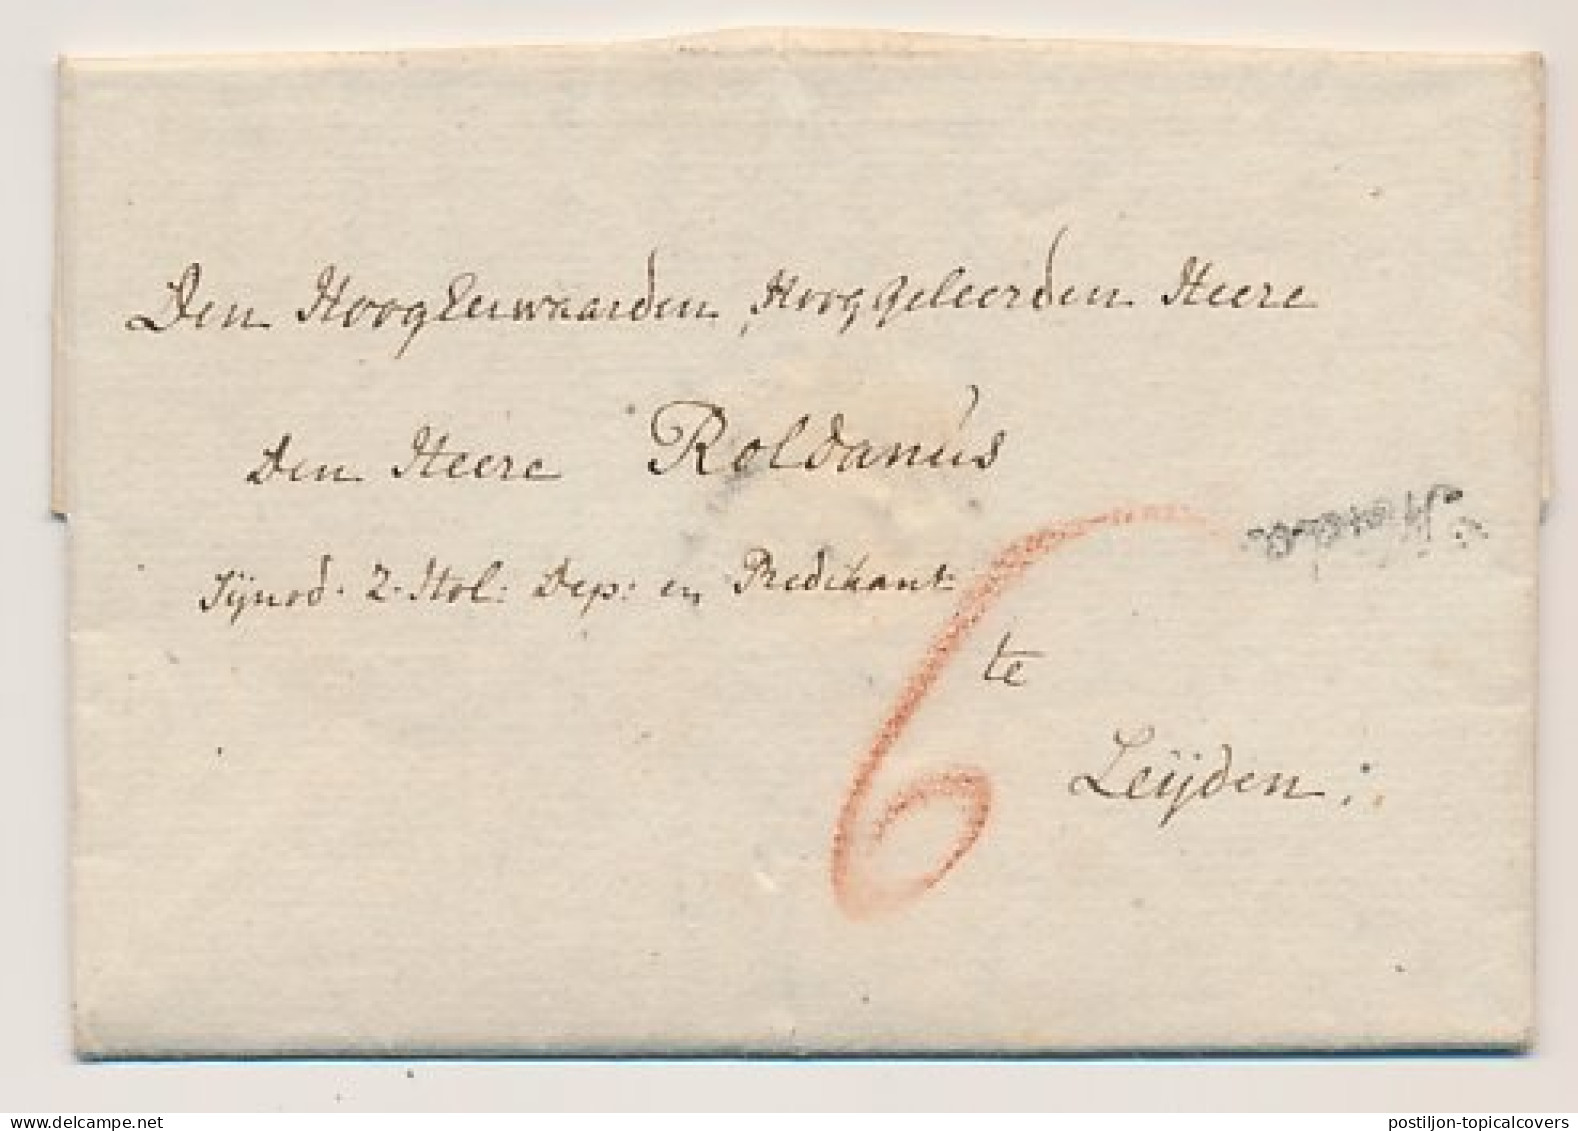 Den HoogEerwaarden, Hooggeleerden Heere
Den Heere Roldanus
Sÿnod. Z. Hol: Dep: en Predikant
te
Leÿden.
6
postiljon-topicalcovers
www.delcampe.net